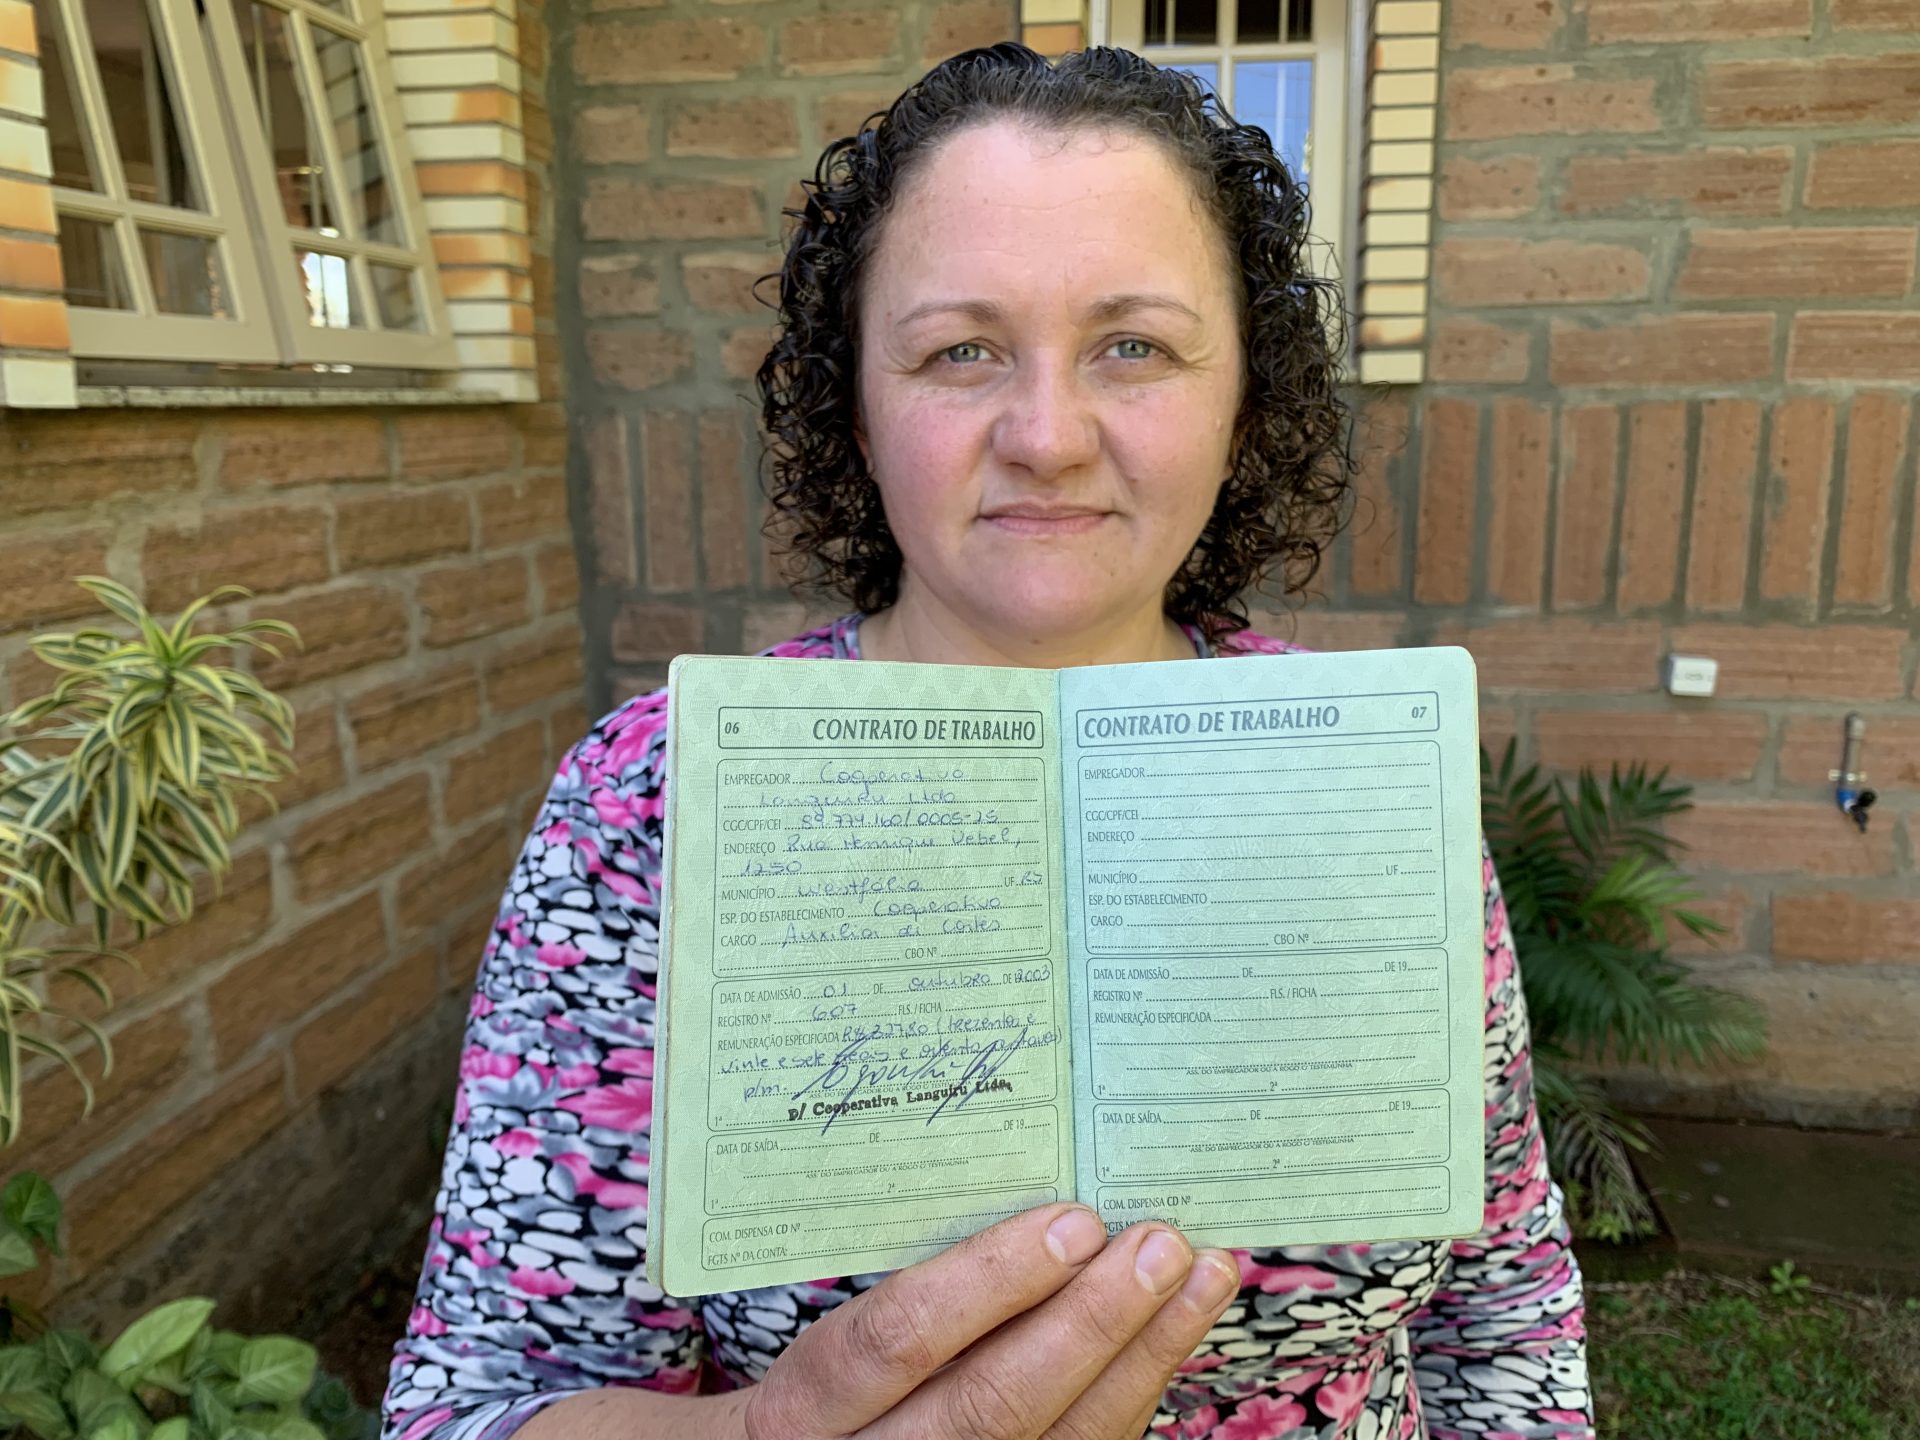 06 CONTRATO DE TRABALHO
EMPREGADOR Cooperativa
Languiru Ltda
CGC/CPF/CEI 89.774.160/0005-25
ENDEREÇO Rua Henrique Uebel,
1250
MUNICÍPIO Westfália UF RS
ESP. DO ESTABELECIMENTO Cooperativa
CARGO Auxiliar de Cortes
CBO Nº
DATA DE ADMISSÃO 01 DE outubro DE 19 2003
REGISTRO Nº 607 FLS. / FICHA
REMUNERAÇÃO ESPECIFICADA R$ 327,80 (trezentos e
vinte e sete reais e oitenta centavos)
p/m.
ASS. DO
P/ Cooperativa Languiru Ltda.
1ª 2ª
DATA DE SAÍDA DE DE 19
ASS. DO EMPREGADOR OU A ROGO C/ TESTEMUNHA
1ª 2ª
COM. DISPENSA CD Nº
FGTS Nº DA CONTA:
CONTRATO DE TRABALHO 07
EMPREGADOR
CGC/CPF/CEI
ENDEREÇO
MUNICÍPIO UF
ESP. DO ESTABELECIMENTO
CARGO
CBO Nº
DATA DE ADMISSÃO DE DE 19
REGISTRO Nº FLS. / FICHA
REMUNERAÇÃO ESPECIFICADA
ASS. DO EMPREGADOR OU A ROGO C/ TESTEMUNHA
1ª 2ª
DATA DE SAÍDA DE DE 19
ASS. DO EMPREGADOR OU A ROGO C/ TESTEMUNHA
1ª 2ª
COM. DISPENSA CD Nº
FGTS Nº CONTA: